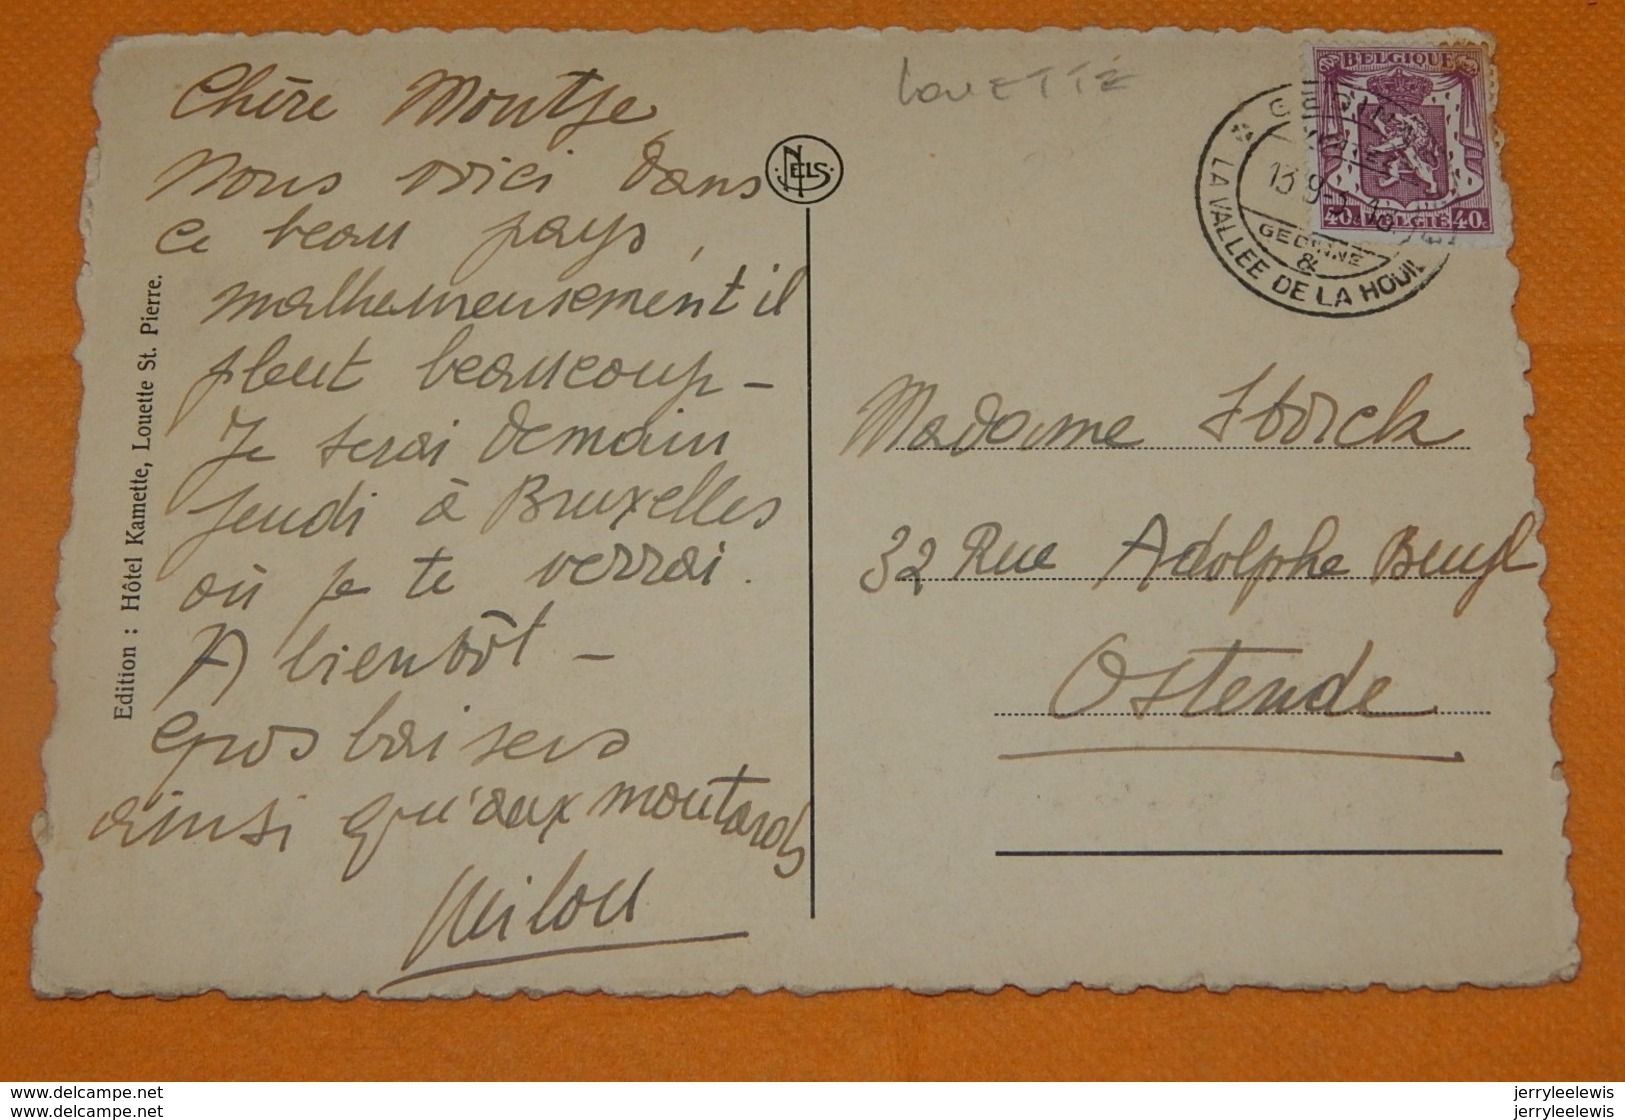 Chère Moutje
Nous voici dans
ce beau pays,
malheureusement il
pleut beaucoup –
Je serai demain
jeudi à Bruxelles
où je te verrai.
A bientôt –
gros baisers
ainsi qu'aux moutards
Milou
Edition : Hôtel Kamette, Louette St. Pierre.
NELS
LOUETTE
BELGIQUE
40c BELGIE 40c
GEDINNE
&
* LA VALLEE DE LA HOUIL
Madame Storck
32 Rue Adolphe Buyl
Ostende
www.delcampe.net
www.delcampe.net
jerryleelewis
jerryleelewis